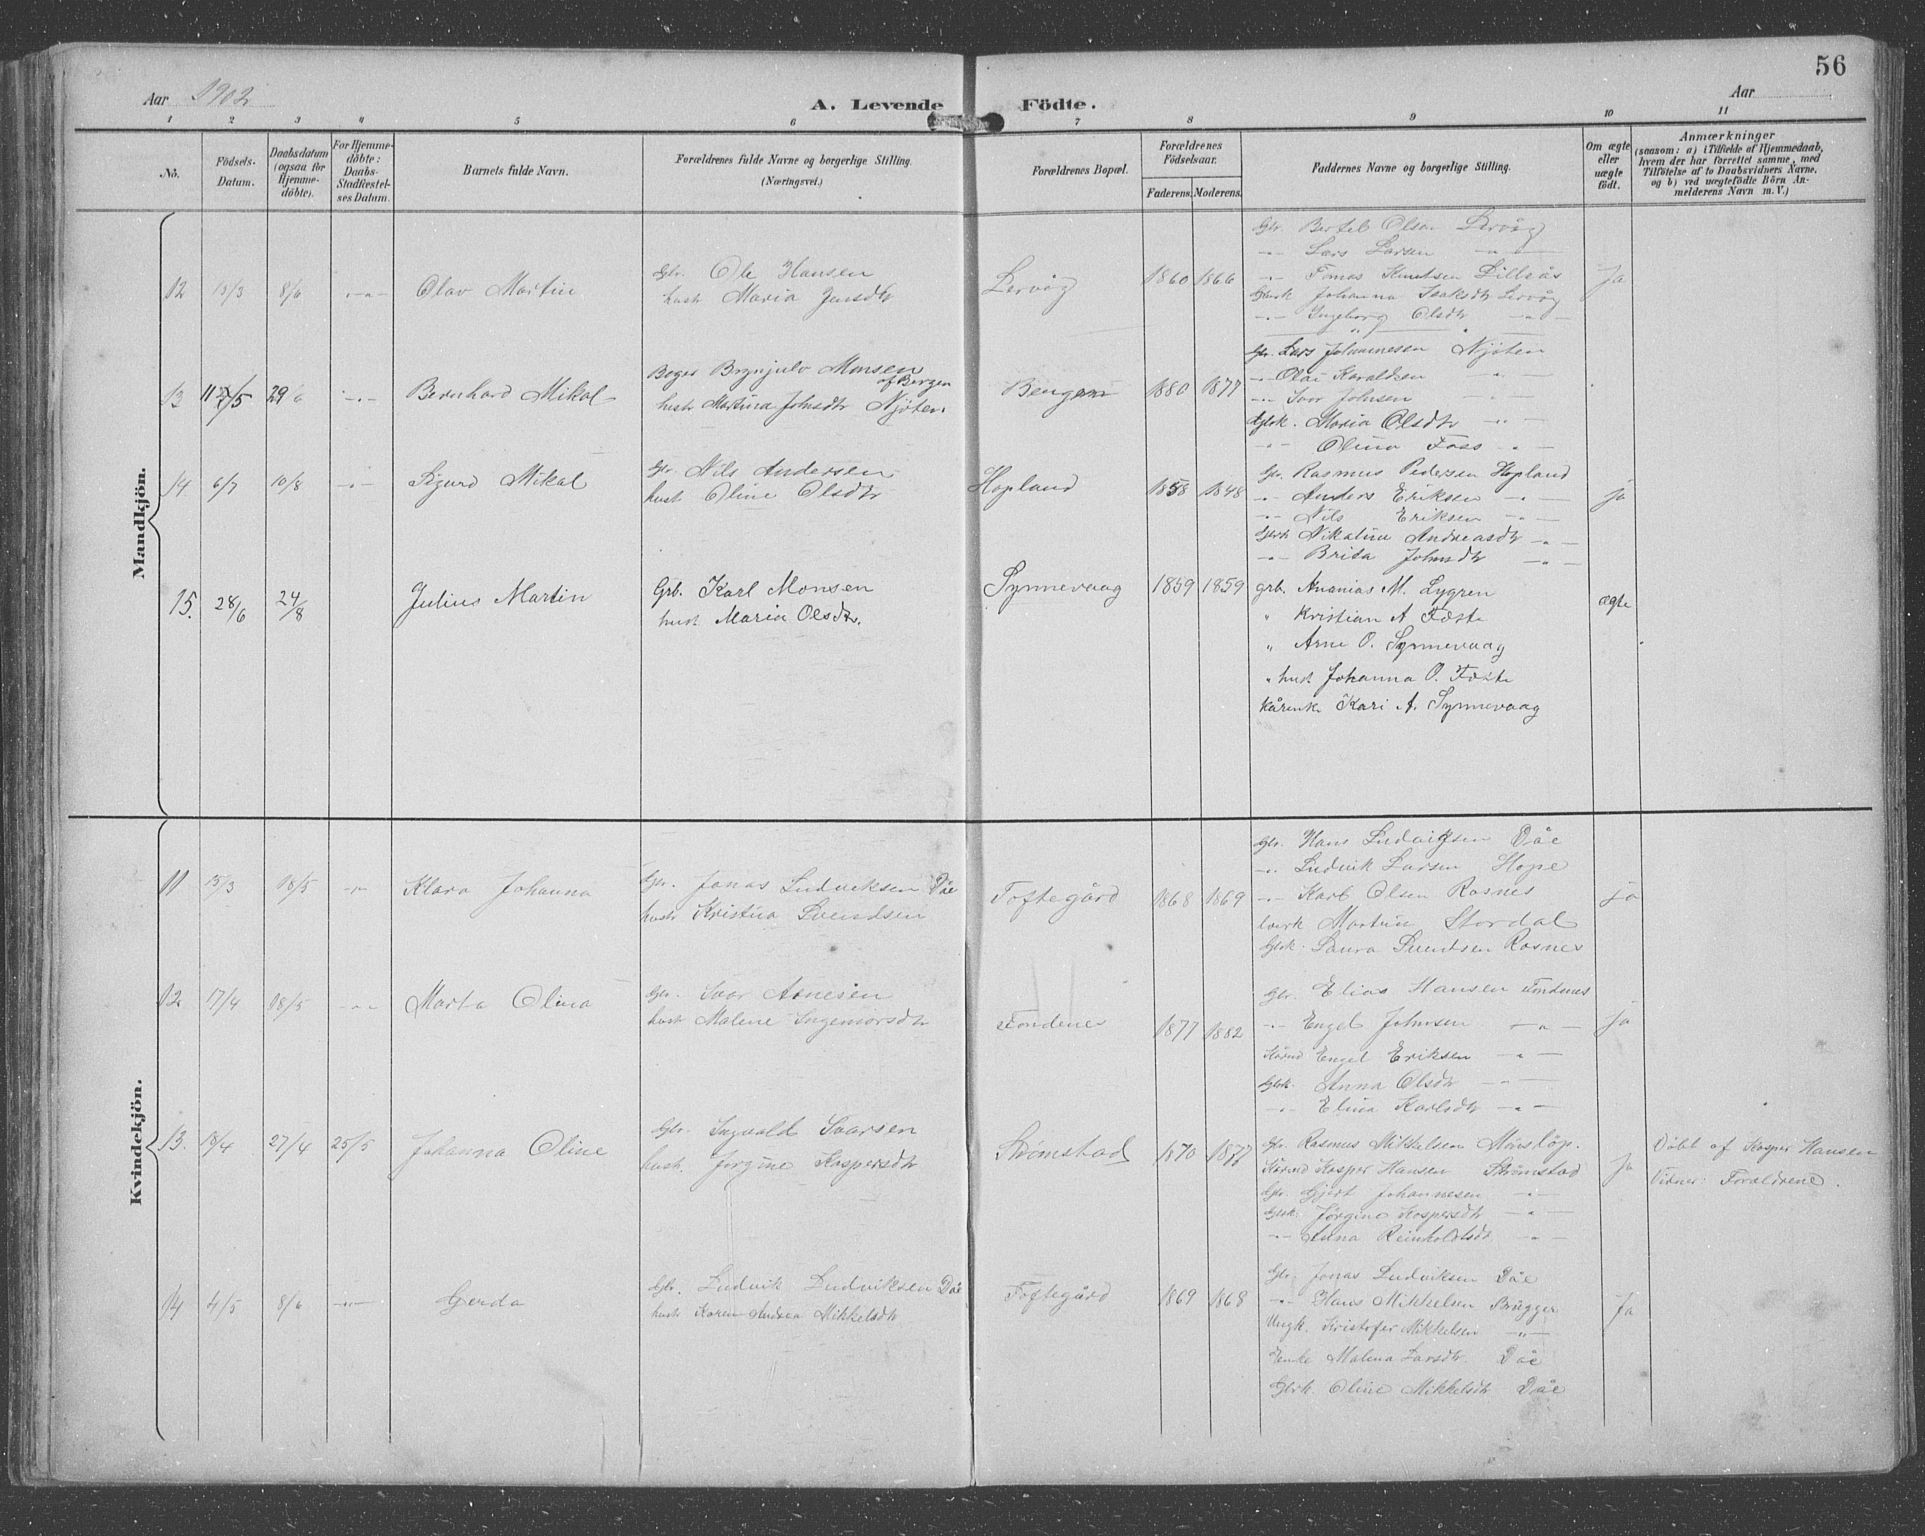 56
Aar 1902
A. Levende Födte.
Aar
1 2 3 4 5 6 7 8 9 10 11
No.
Födsels-Datum.
Daabsdatum (ogsaa för Hjemme-döbte).
For Hjemme-döbte: Daabs-Stadfæstel-ses Datum.
Barnets fulde Navn.
Forældrenes fulde Navne og borgerlige Stilling. (Næringsvei.)
Forældrenes Bopæl.
Forældrenes Födselsaar.
Faderens. Moderens.
Faddernes Navne og borgerlige Stilling.
Om ægte eller uægte födt.
Anmærkninger
(saasom: a) i Tilfælde af Hjemmedaab,
hvem der har forrettet samme, med
Tilföielse af to Daabsvidners Navne,
og b) ved uægtefödte Börn An-
melderens Navn m. V.)
Mandkjön.
12 13/3 8/6 -"- Olav Martin
Gbr. Ole Hansen
hustr Maria Jensdtr
Lervåg 1860 1866
Gbr. Bertel Olsen Lervåg
-"- Lars Larsen -"-
-"- Tomas Knutsen Lillås
Gbrk Johanna Isaksdtr Lervåg
-"- Ingeborg Olsdtr -"-
Ja
13 29/6 -"- Bernhard Mikal
Bager Brynjulv Monsen
af Bergen
hustr Martina Johnsdtr Njöten
Bergen 1880 1877
Gbr. Lars Johannesen Njöten
-"- Olai Karaldsen -"-
-"- Ivar Johnsen -"-
Gbrk. Maria Olsdtr -"-
-"- Olina Foss -"-
14 6/7 10/8 -"- Sigurd Mikal
Gbr. Nils Andersen
hustr Oline Olsdtr
Hopland 1858 1848
Gbr. Rasmus Pedersen Hopland
-"- Anders Eriksen -"-
-"- Nils Eriksen -"-
Gbrk Nikaline Andreasdtr -"-
-"- Brita Johnsdtr -"-
ja
15. 28/6 24/8 Julius Martin
Grb. Karl Monsen
hust Maria Olsdtr.
Synnevaag 1859 1859
grb. Ananias M. Lygren
" Kristian A Fæste
" Arne O. Synnevaag
" hust Johanna O. Fæste
kårenke Kari A. Synnevaag
ægte
Kvindekjön.
11 15/3 18/5 -"- Klara Johanna
Gbr. Jonas Ludviksen Döe
hustr Kristina Svendsen
Toftegård 1868 1869
Gbr. Hans Ludvigsen Döe
-"- Ludvik Larsen Hope
-"- Karl Olsen Rosnes
Martin Stordal
Gbrk. Laura Svendsen Rosnes
ja
12. 17/4 18/5 -"- Marta Olina
Gbr. Ivar Arnesen
hustr Malene Ingemorsdtr
Fondenes 1877 1882
Gbr. Elias Hansen Fondenes
-"- Engel Johnsen -"-
Kårmd Engel Eriksen -"-
Gbrk. Anna Olsdtr -"-
-"- Elina Karlsdtr -"-
ja
13. 18/4 27/4 25/5 Johanna Oline
Gbr. Ingvald Ivarsen
hustr. Jorgine Kaspersdtr
Strömstad 1870
Gbr. Rasmus Mikkelsen Monslöp.
Kårmd Kasper Hansen Strömstad
Gbr. Gjert Johannesen -"-
Gbrk. Jörgine Kaspersdtr -"-
-"- Anna Reinholdtsdtr -"-
Ja
Döbt af Kasper Hansen
Vidner: Forældrene.
14 4/5 8/6 -"- Gerda
Gbr. Ludvik Ludviksen Döe
hustr Karen Andrea Mikkelsdtr
Toftegård 1869 1868
Gbr. Jonas Ludviksen Döe
-"- Hans Mikkelsen Brügger
Ungk. Kristofer Mikkelsen -"-
Enke Malena Larsdtr. Döe
Gbrk. Oline Mikkelsdtr Döe
Ja